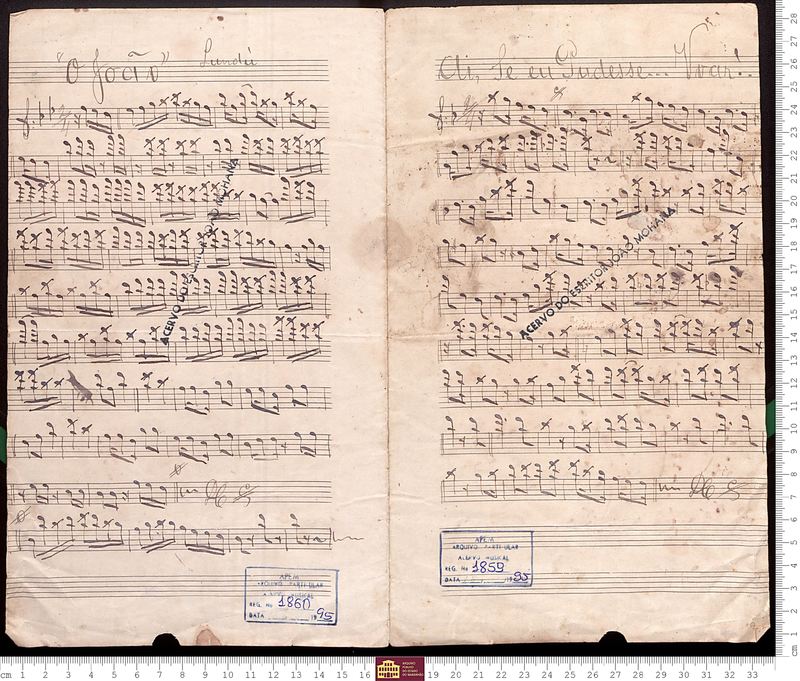 "O João" Lundú
D.C.
ACERVO DO ESCRITOR JOÃO MOHANA
APEM
ARQUIVO PARTICULAR
ACERVO MUSICAL
REG. No 1860
DATA 1995
Ai, Se eu Pudesse... Voar!..
D.C.
ACERVO DO ESCRITOR JOÃO MOHANA
APEM
ARQUIVO PARTICULAR
ACERVO MUSICAL
REG. No 1859
DATA 1995
cm 1 2 3 4 5 6 7 8 9 10 11 12 13 14 15 16 cm
ARQUIVO PÚBLICO DO ESTADO DO MARANHÃO
19 20 21 22 23 24 25 26 27 28 29 30 31 32 33
cm 1 2 3 4 5 6 7 8 9 10 11 12 13 14 15 16 17 18 19 20 21 22 23 24 25 26 27 28